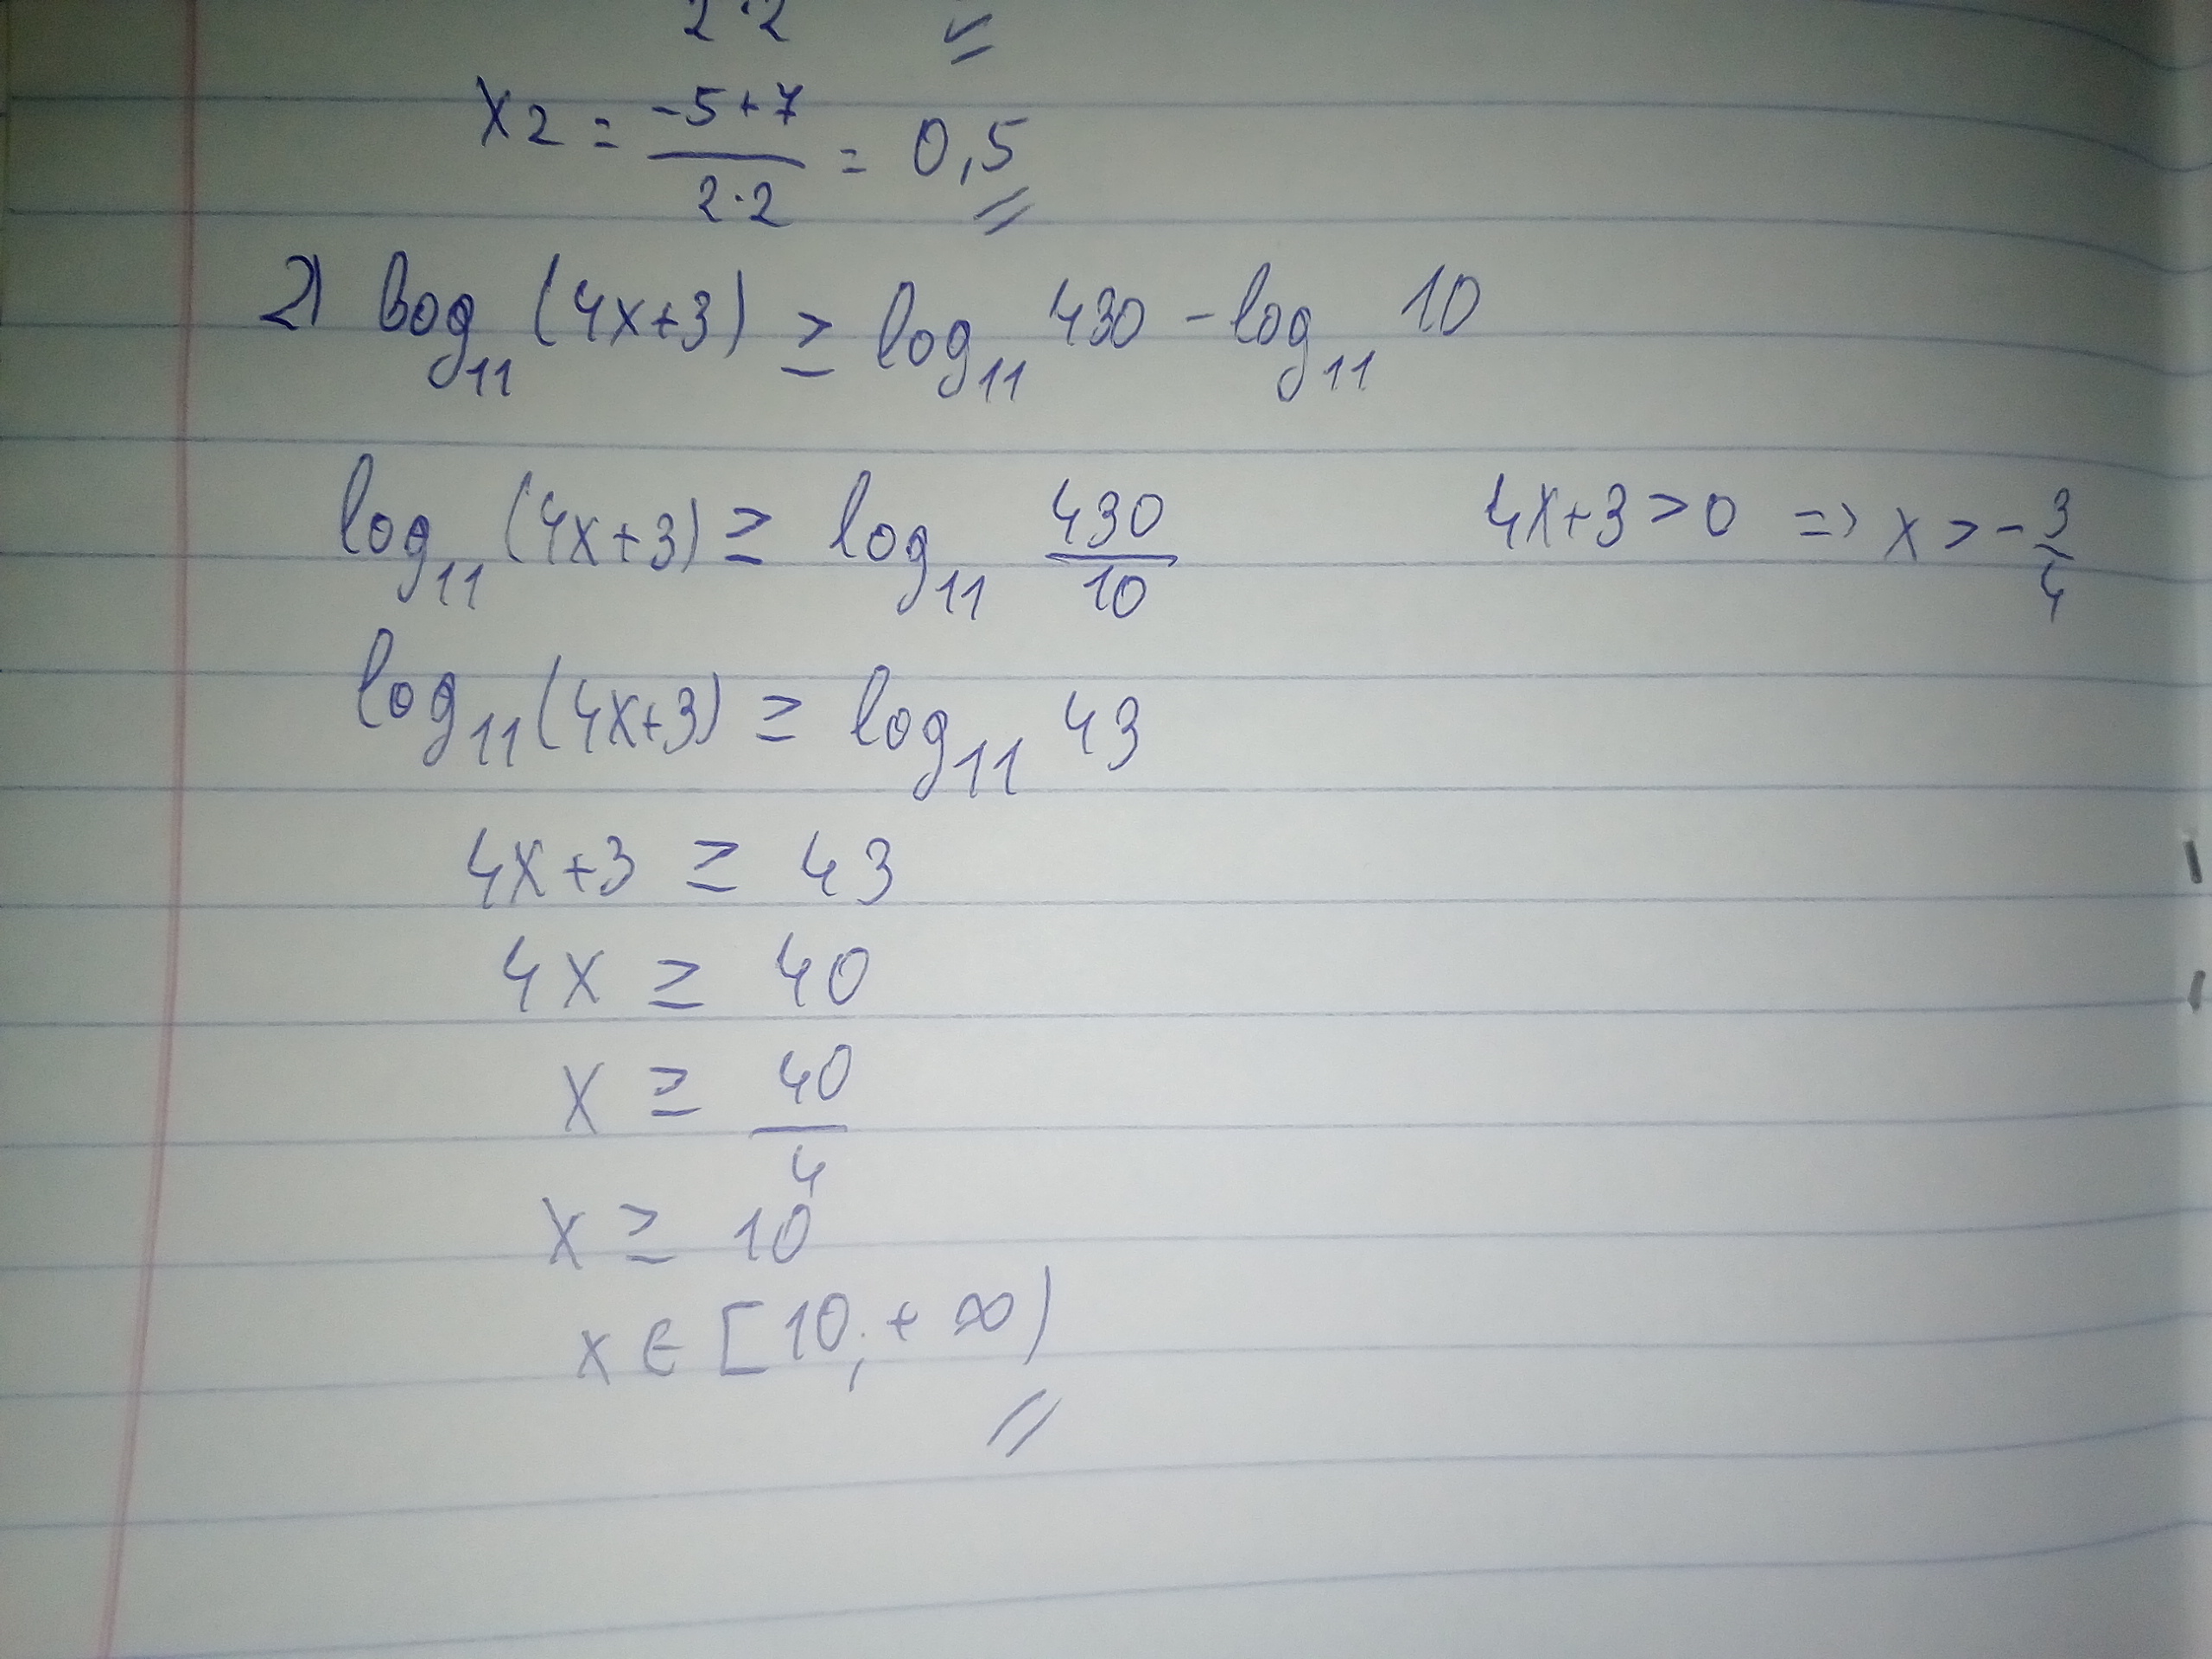 2·2
x2 = -5+7/2·2 = 0,5
2) log₁₁ (4x+3) ≥ log₁₁ 430 - log₁₁ 10
log₁₁ (4x+3) ≥ log₁₁ 430/10 4x+3>0 => x > -3/4
log₁₁ (4x+3) ≥ log₁₁ 43
4x+3 ≥ 43
4x ≥ 40
x ≥ 40/4
x ≥ 10
x ∈ [10; +∞)